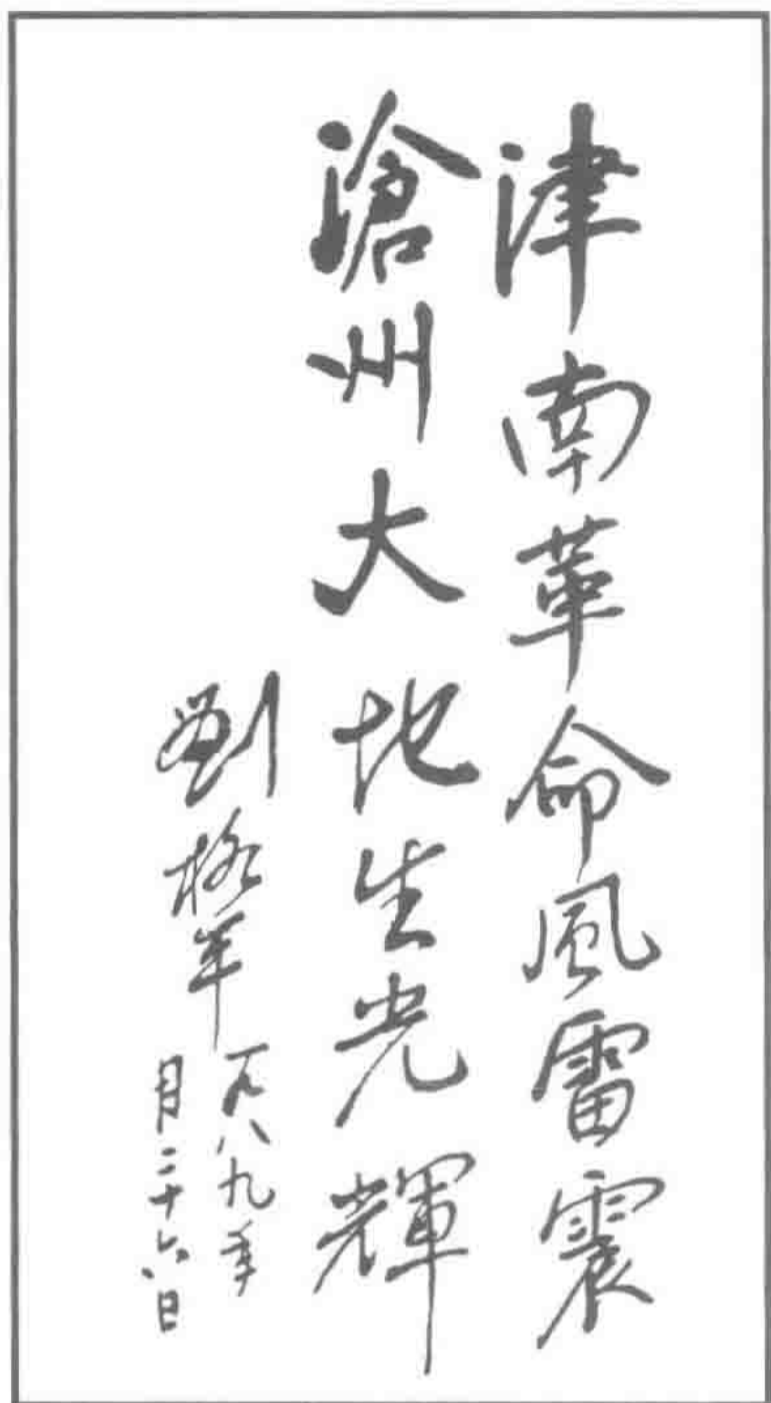 津南革命風雷震
滄州大地生光輝
劉格平
一九八九年
月二十六日